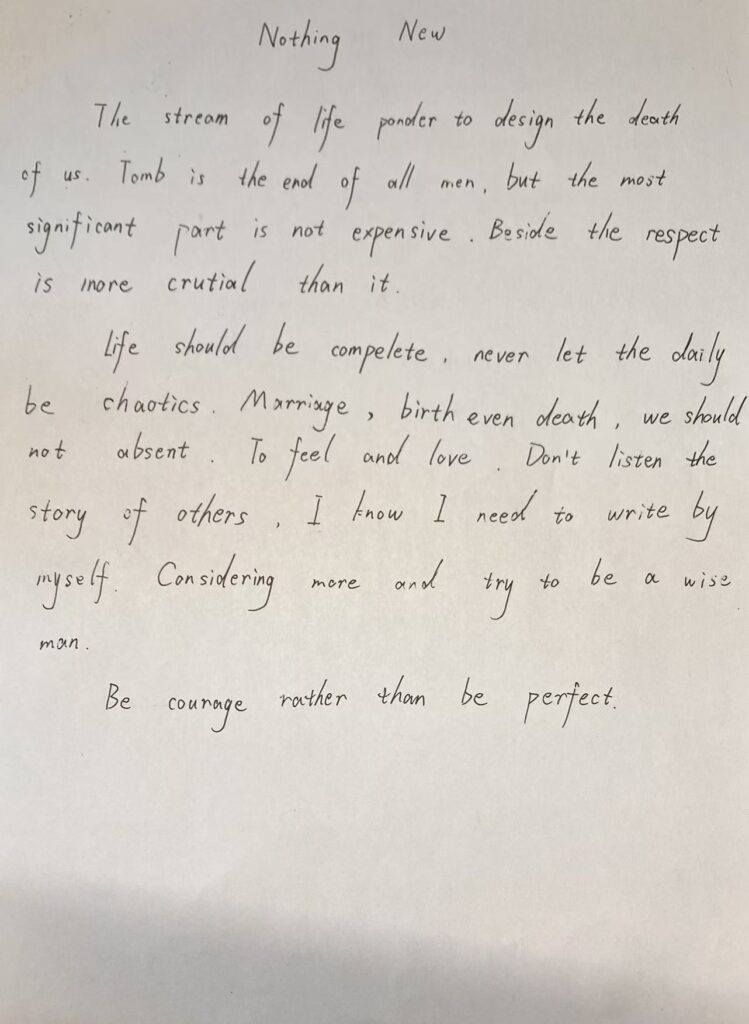 Nothing New
The stream of life ponder to design the death
of us. Tomb is the end of all men, but the most
significant part is not expensive. Beside the respect
is more crutial than it.
Life should be compelete, never let the daily
be chaotics. Marriage, birth even death, we should
not absent. To feel and love. Don't listen the
story of others, I know I need to write by
myself. Considering more and try to be a wise
man.
Be courage rather than be perfect.